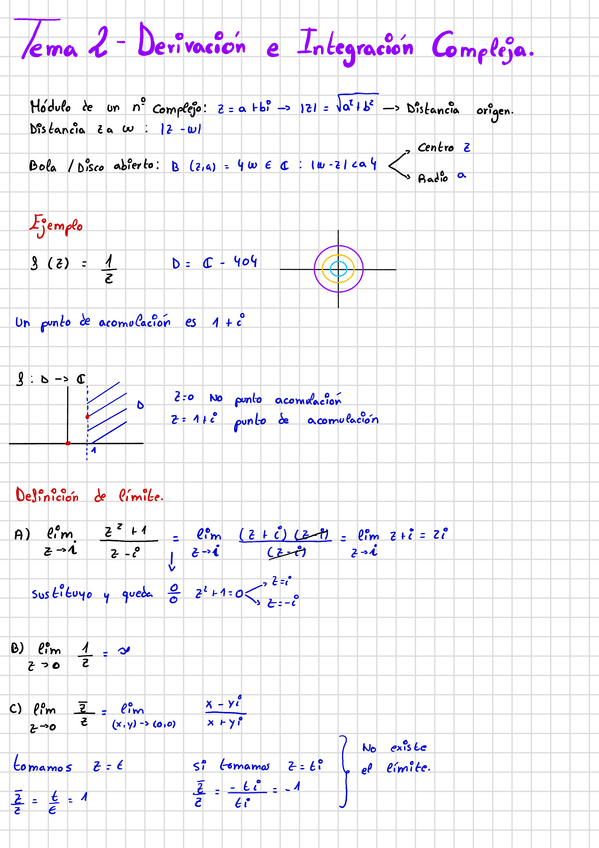 Tema 2 - Derivación e Integración Compleja.
Módulo de un nº Complejo: z = a + bi → |z| = √a² + b² → Distancia origen.
Distancia z a w : |z - w|
Bola / Disco abierto: B (z,a) = {w ∈ ℂ : |w - z| < a}
Centro z
Radio a
Ejemplo
f (z) = 1/z   D = ℂ - {0}
Un punto de acomulación es 1 + i
f : D → ℂ
z=0 No punto acomulación
z = 1+i punto de acomulación
D
1
Definición de límite.
A) lím z→i (z² + 1)/(z - i) = lím z→i (z + i)(z - i)/(z - i) = lím z→i z + i = 2i
sustituyo y queda 0/0 z² + 1 = 0
z = i
z = -i
B) lím z→0 1/z = ∞
C) lím z→0 z̅/z = lím (x,y)→(0,0) (x - yi)/(x + yi)
tomamos z = t   si tomamos z = ti
z̅/z = t/t = 1   z̅/z = -ti/ti = -1
No existe
el límite.